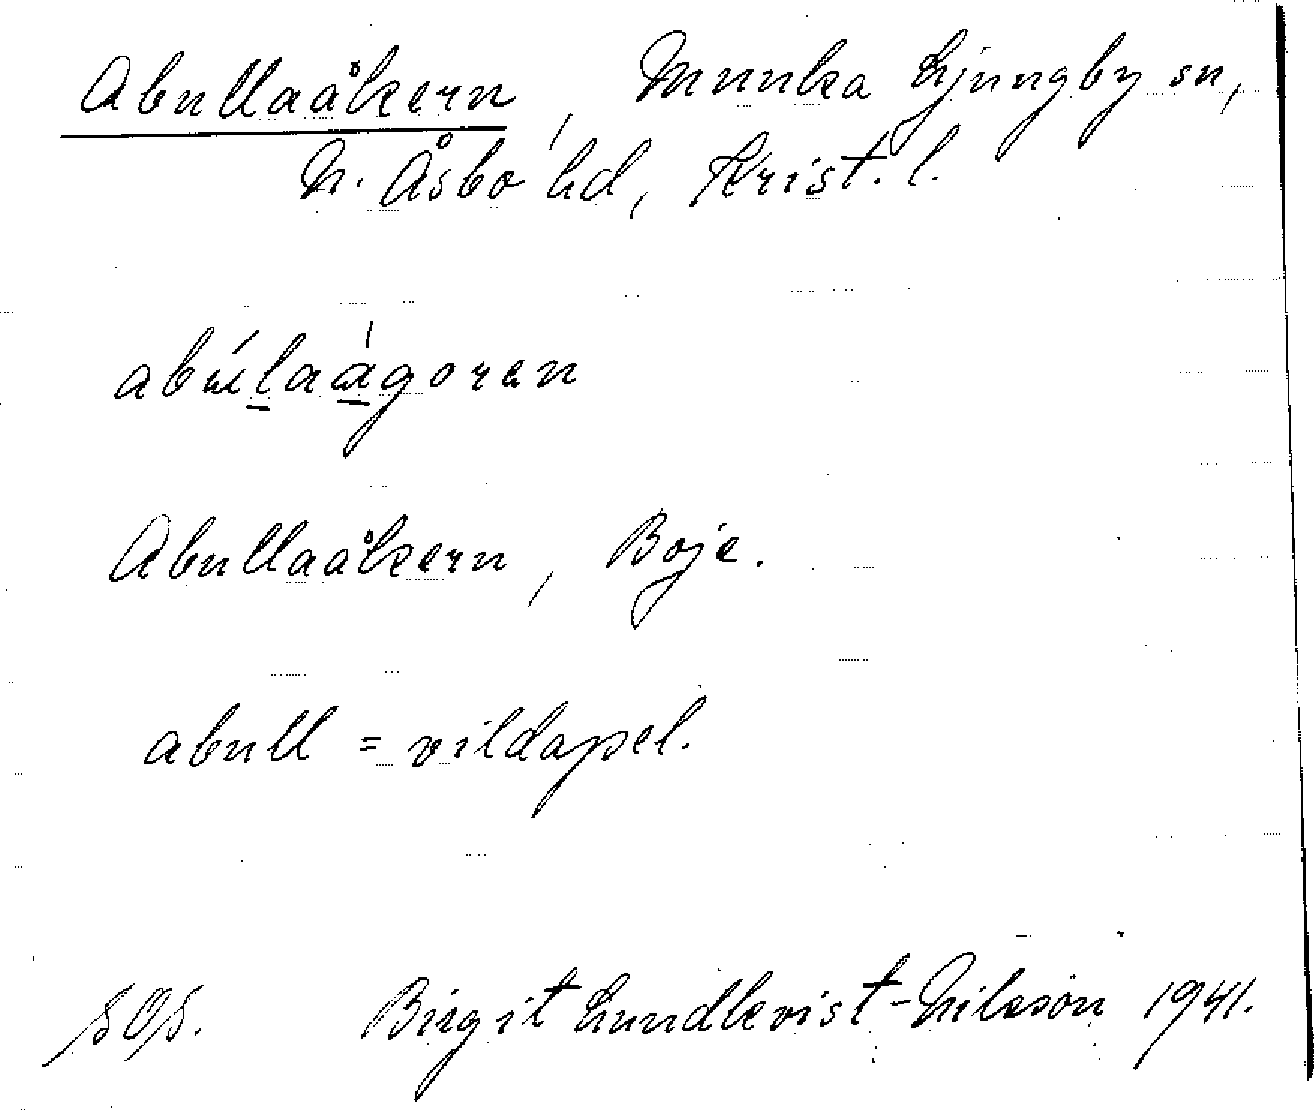 Abullaåkern, Munka Ljungby sn,
N. Åsbo hd, Krist. l.
abúlaágoran
Abullaåkern, Boje.
abull = vildapel.
SOS. Birgit Lundkvist-Nilsson 1941.